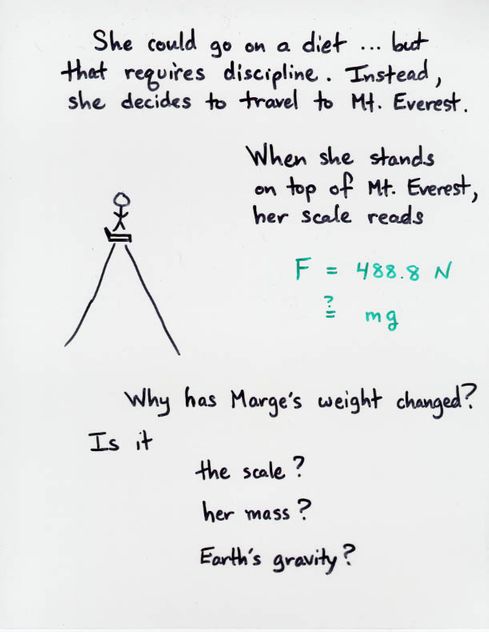 She could go on a diet ... but
that requires discipline. Instead,
she decides to travel to Mt. Everest.
When she stands
on top of Mt. Everest,
her scale reads
F = 488.8 N
≟ mg
Why has Marge's weight changed?
Is it
the scale?
her mass?
Earth's gravity?